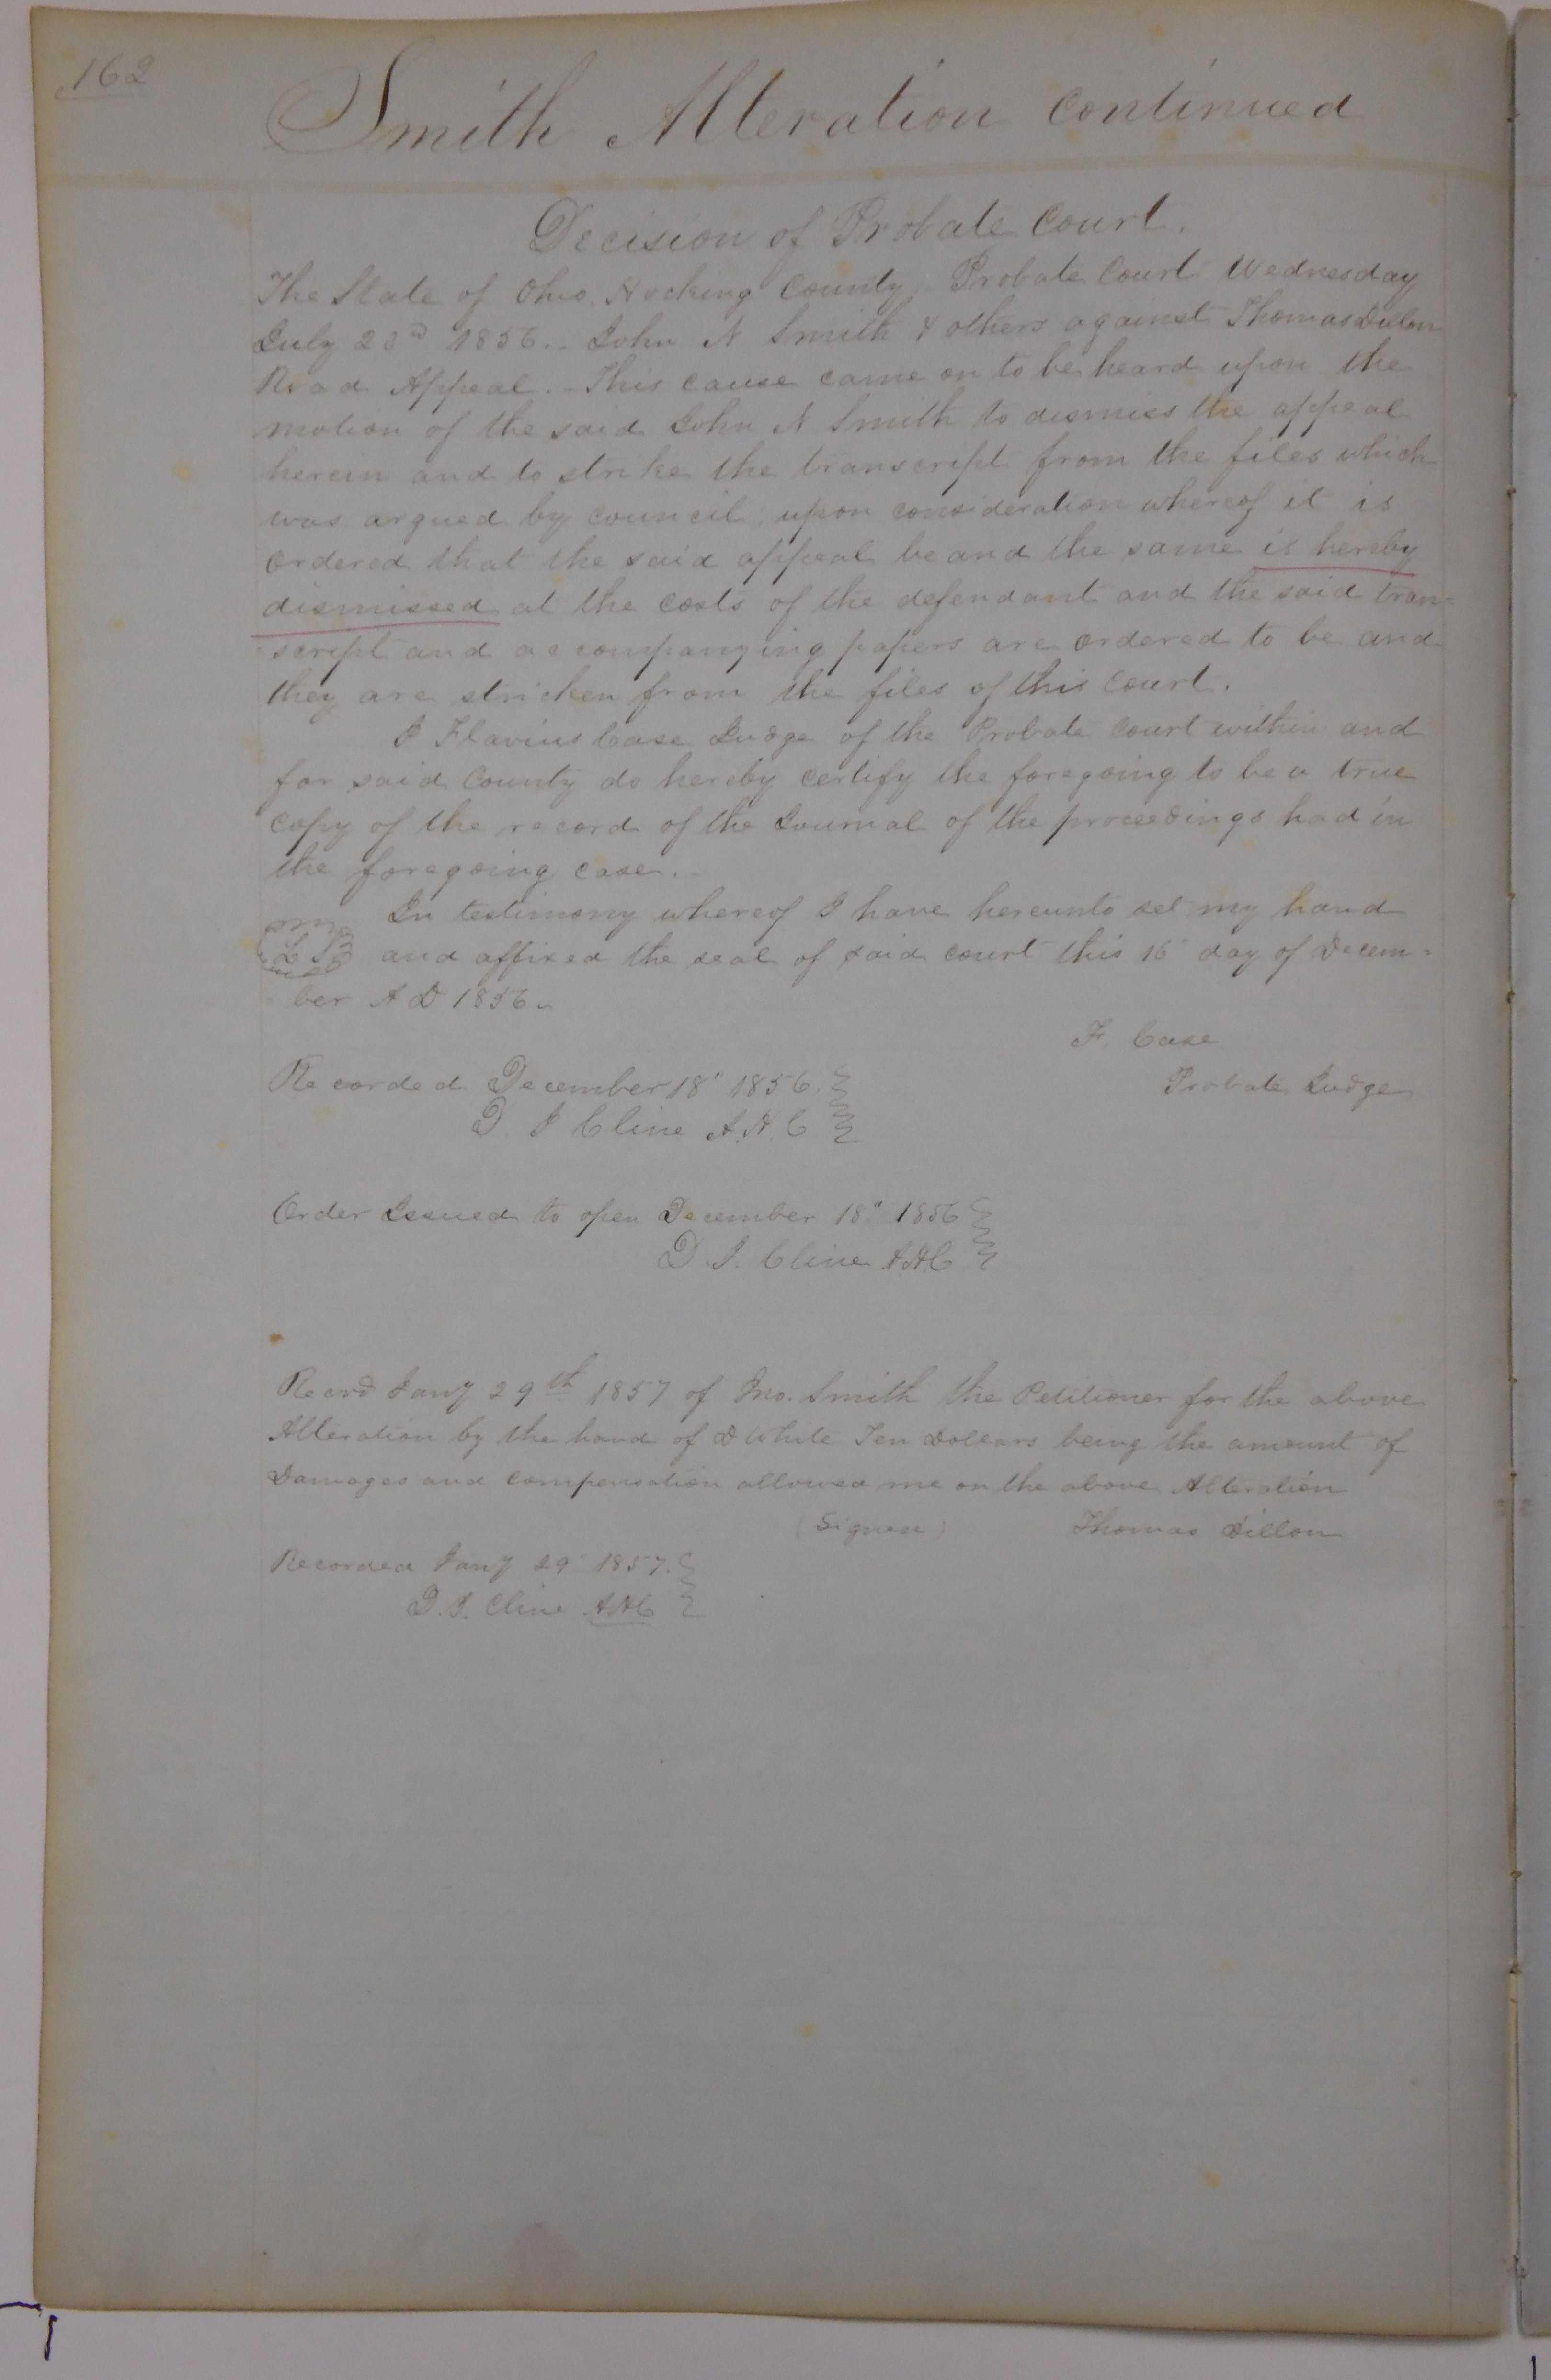 162
Smith Alteration continued
Decision of Probate Court.
The State of Ohio, Hocking County. Probate Court Wednesday
July 23d 1856.- John N Smith & others against Thomas Dillon
Road Appeal.- This cause came on to be heard upon the
motion of the said John N Smith to dismiss the appeal
herein and to strike the transcript from the files which
was argued by council, upon consideration whereof it is
ordered that the said appeal be and the same is hereby
dismissed at the costs of the defendant and the said tran=
script and accompanying papers are ordered to be and
they are stricken from the files of this court.
I Flavius Case Judge of the Probate Court within and
for said County do hereby certify the foregoing to be a true
copy of the record of the Journal of the proceedings had in
the foregoing case.-
In testimony whereof I have hereunto set my hand
L S and affixed the seal of said court this 16 day of Decem=
ber A D 1856.
F. Case
Probate Judge
Recorded December 18" 1856.
D. I Cline A.H.C
Order Issued to open December 18" 1856
D. I. Cline A.H.C
Recvd Jany 29th 1857 of Jno. Smith the Petitioner for the above
Alteration by the hand of D White Ten Dollars being the amount of
Damages and compensation allowed me on the above Alteration
(Signed) Thomas Dillon
Recorded Jany 29" 1857.
D. I. Cline A.H.C